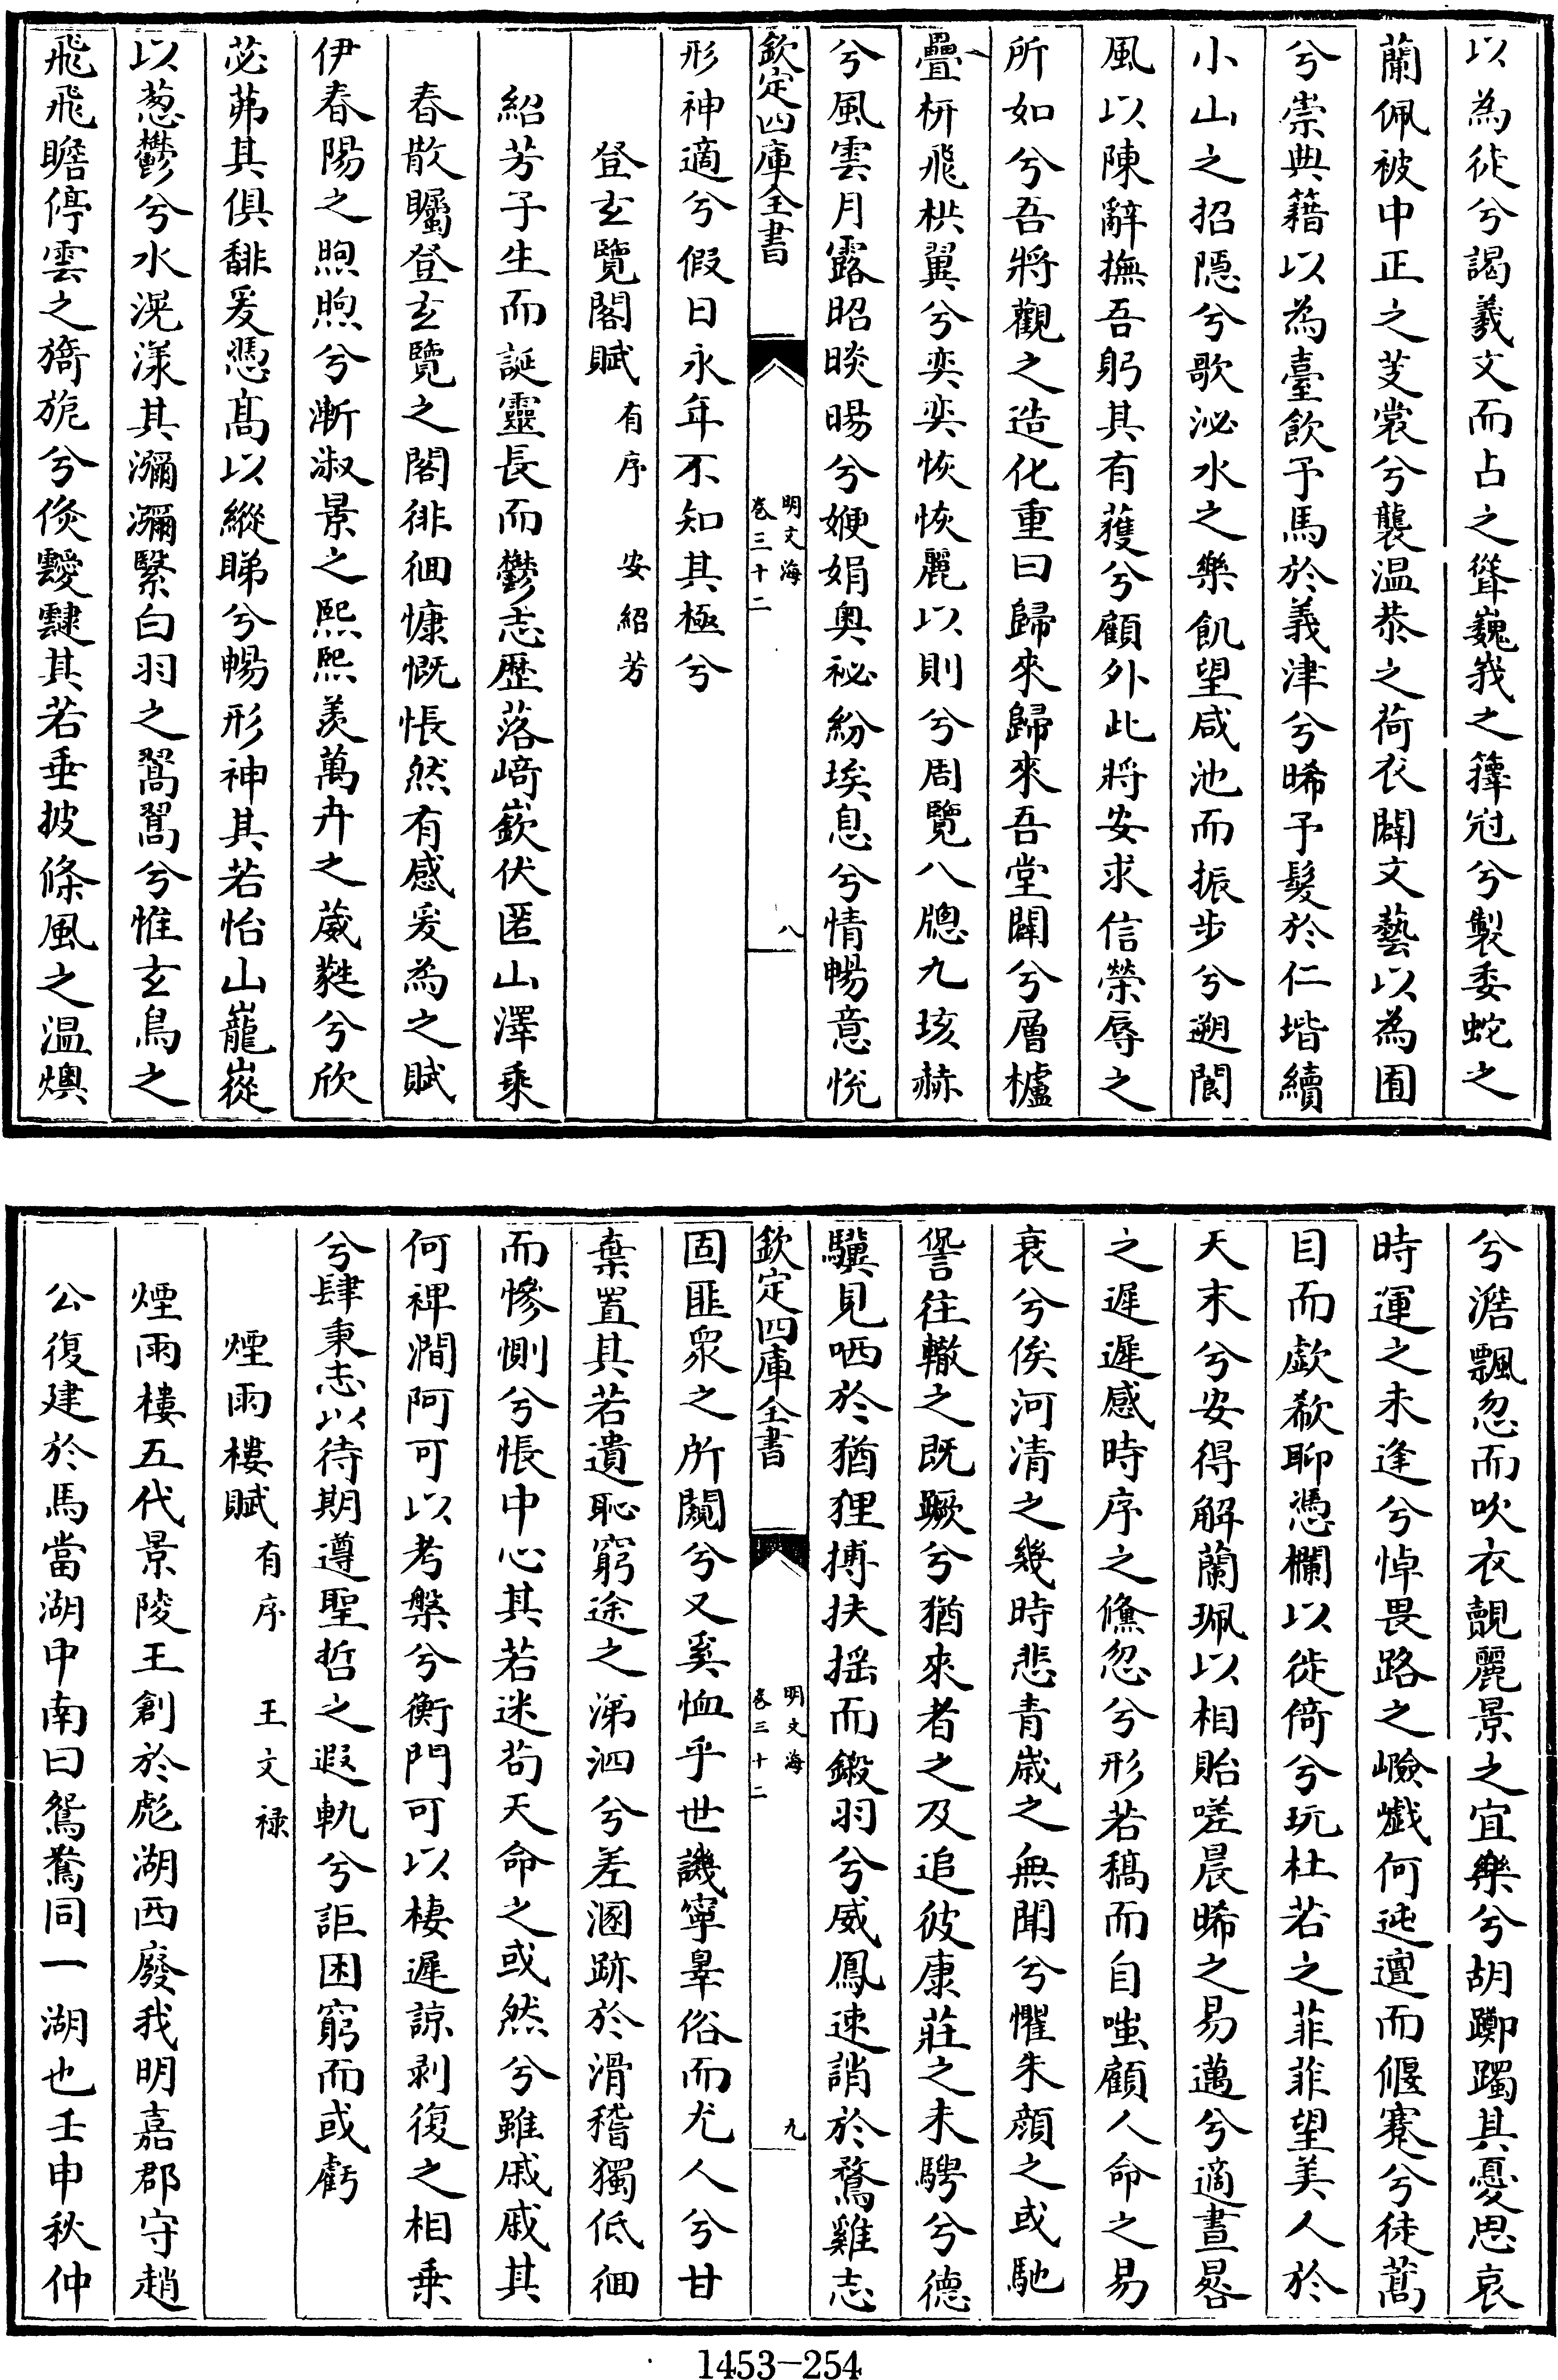 以為徒兮謁羲文而占之聳巍峩之籜冠兮製委蛇之
蘭佩被中正之芰裳兮襲温恭之荷衣闢文藝以為囿
兮崇典籍以為臺飲予馬於義津兮晞予髮於仁堦續
小山之招隠兮歌泌水之樂飢望咸池而振步兮遡閬
風以陳辭撫吾躬其有獲兮顧外此將安求信榮辱之
所如兮吾將觀之造化重曰歸來歸來吾堂闢兮層櫨
疊枅飛栱翼兮奕奕恢恢麗以則兮周覽八牕九垓赫
兮風雲月露昭晱暘兮娬娟奥祕紛埃息兮情暢意悅
欽定四庫全書
明文海
卷三十二
八
形神適兮假日永年不知其極兮
登玄覽閣賦有序 安紹芳
紹芳子生而誕靈長而鬱志歷落﨑嶔伏匿山澤乘
春散矚登玄覽之閣徘徊慷慨悵然有感爰為之賦
伊春陽之煦煦兮漸淑景之熙熙羨萬卉之葳蕤兮欣
苾茀其俱馡爰憑髙以縱睇兮暢形神其若怡山巃嵸
以葱鬱兮水滉漾其瀰瀰繄白羽之翯翯兮惟玄鳥之
飛飛瞻停雲之旖旎兮倐靉靆其若垂披條風之温燠
兮澔飄忽而吹衣覿麗景之宜樂兮胡躑躅其憂思哀
時運之未逢兮悼畏路之嶮巇何迍邅而偃蹇兮徒蒿
目而歔欷聊憑欄以徙倚兮玩杜若之菲菲望美人於
天末兮安得解蘭珮以相貽嗟晨晞之易邁兮適晝晷
之遲遲感時序之儵忽兮形若稿而自嗤顧人命之易
衰兮俟河清之幾時悲青歲之無聞兮懼朱顔之或馳
譽往轍之既蹶兮猶來者之及追彼康莊之未騁兮德
驥見哂於猶狸摶扶揺而鎩羽兮威鳳速誚於鶩雞志
欽定四庫全書
明文海
卷三十二
九
固匪衆之所闚兮又奚恤乎世譏寧辠俗而尤人兮甘
棄置其若遺恥窮途之涕泗兮差溷跡於滑稽獨低徊
而慘惻兮悵中心其若迷茍天命之或然兮雖戚戚其
何裨澗阿可以考槃兮衡門可以棲遲諒剥復之相乗
兮肆秉志以待期遵聖哲之遐軌兮詎困窮而或虧
煙雨樓賦有序 王文禄
煙雨樓五代景陵王創於彪湖西廢我明嘉郡守趙
公復建於馬當湖中南曰鴛鴦同一湖也壬申秋仲
1453-254